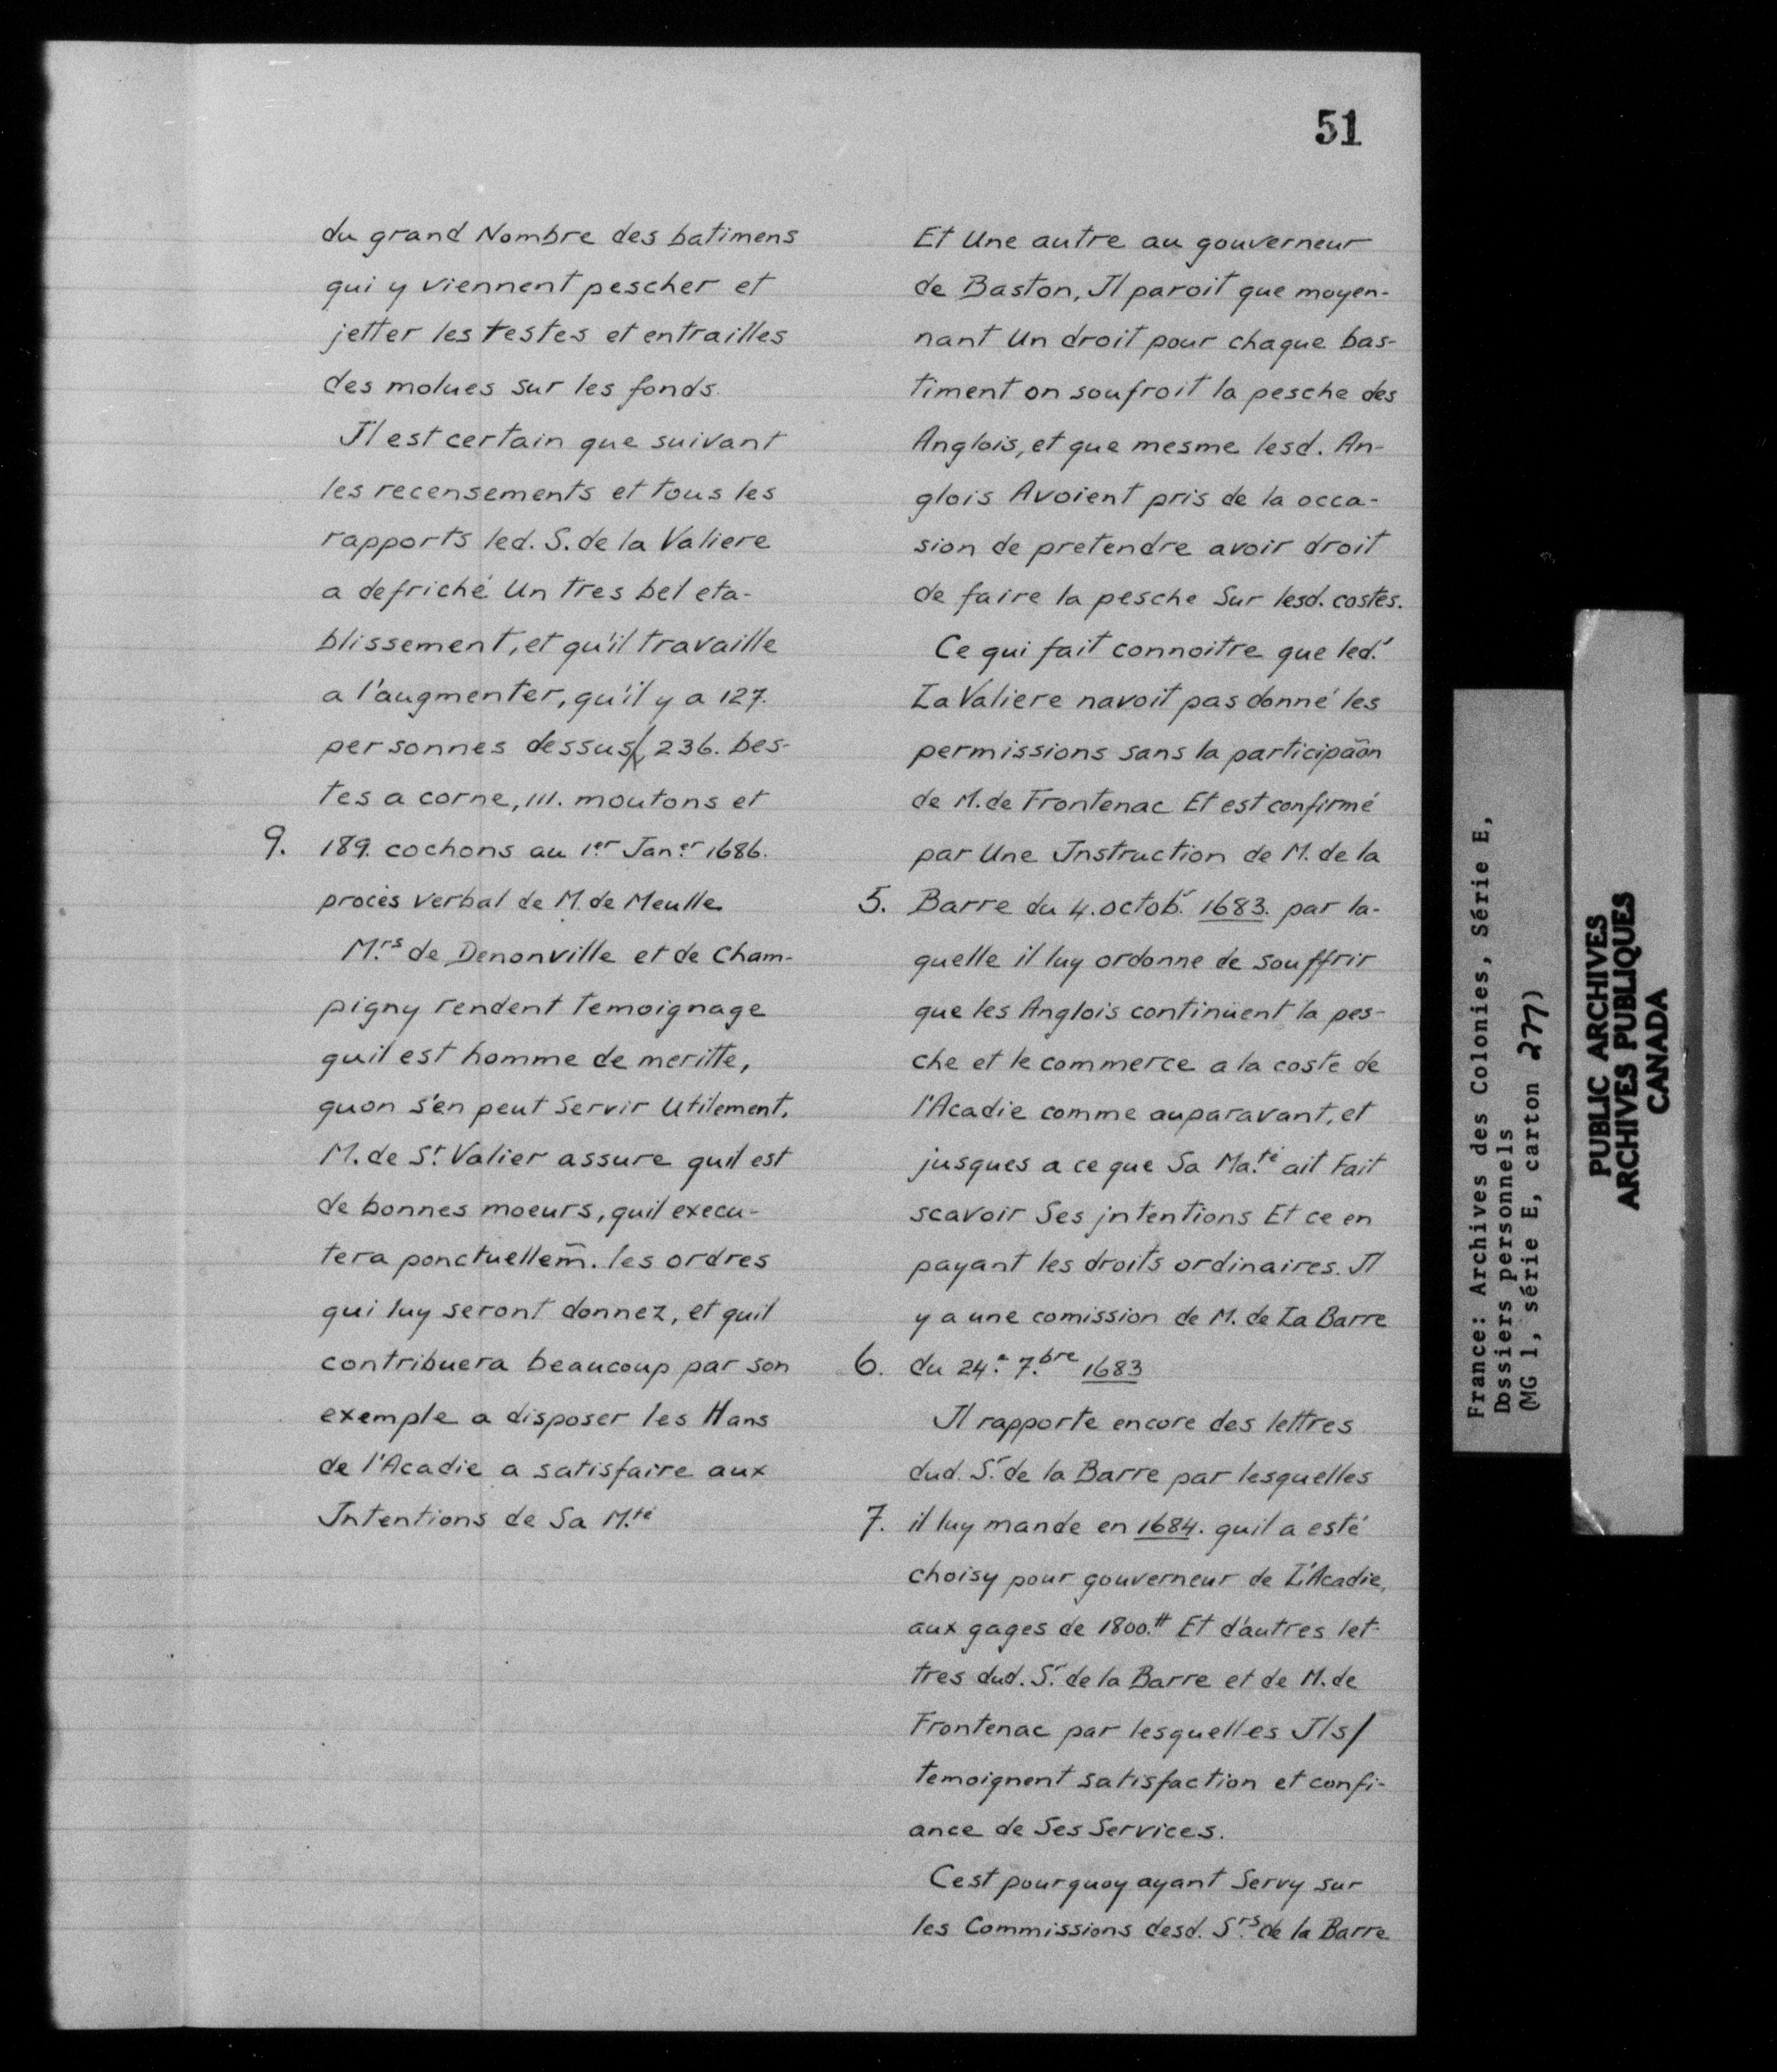 51
du grand Nombre des batimens
qui y viennent pescher et
jetter les testes et entrailles
des molues sur les fonds.
Il est certain que suivant
les recensements et tous les
rapports led. S. de la Valiere
a defriché Un tres bel eta-
blissement, et qu'il travaille
a l'augmenter, qu'il y a 127.
personnes dessus, 236. bes-
tes a corne, 111. moutons et
9. 189. cochons au 1.er Jan.er 1686.
procès verbal de M. de Meulle
M.rs de Denonville et de Cham-
pigny rendent temoignage
quil est homme de meritte,
quon s'en peut Servir Utilement.
M. de S.t Valier assure quil est
de bonnes moeurs, quil execu-
tera ponctuellem̄. les ordres
qui luy seront donnez, et quil
contribuera beaucoup par son
exemple a disposer les Hans
de l'Acadie a satisfaire aux
Intentions de Sa M.té
Et Une autre au gouverneur
de Baston, Il paroit que moyen-
nant Un droit pour chaque bas-
timent on soufroit la pesche des
Anglois, et que mesme lesd. An-
glois Avoient pris de la occa-
sion de pretendre avoir droit
de faire la pesche Sur lesd. costes.
Ce qui fait connoitre que led.
La Valiere navoit pas donné les
permissions sans la participāon
de M. de Frontenac Et est confirmé
par Une Instruction de M. de la
5. Barre du 4. octob.r 1683. par la-
quelle il luy ordonne de souffrir
que les Anglois continüent la pes-
che et le commerce a la coste de
l'Acadie comme auparavant, et
jusques a ce que Sa Ma.té ait Fait
scavoir Ses jntentions Et ce en
payant les droits ordinaires. Il
y a une comission de M. de La Barre
6. du 24.e 7.bre 1683
Il rapporte encore des lettres
dud. S.r de la Barre par lesquelles
7. il luy mande en 1684. quil a esté
choisy pour gouverneur de L'Acadie,
aux gages de 1800.tt Et d'autres let-
tres dud. S.r de la Barre et de M. de
Frontenac par lesquelles Ils/
temoignent satisfaction et confi-
ance de Ses Services.
Cest pourquoy ayant Servy sur
les Commissions desd. S.rs de la Barre
France: Archives des Colonies, Série E,
Dossiers personnels
(MG 1, série E, carton 277)
PUBLIC ARCHIVES
ARCHIVES PUBLIQUES
CANADA